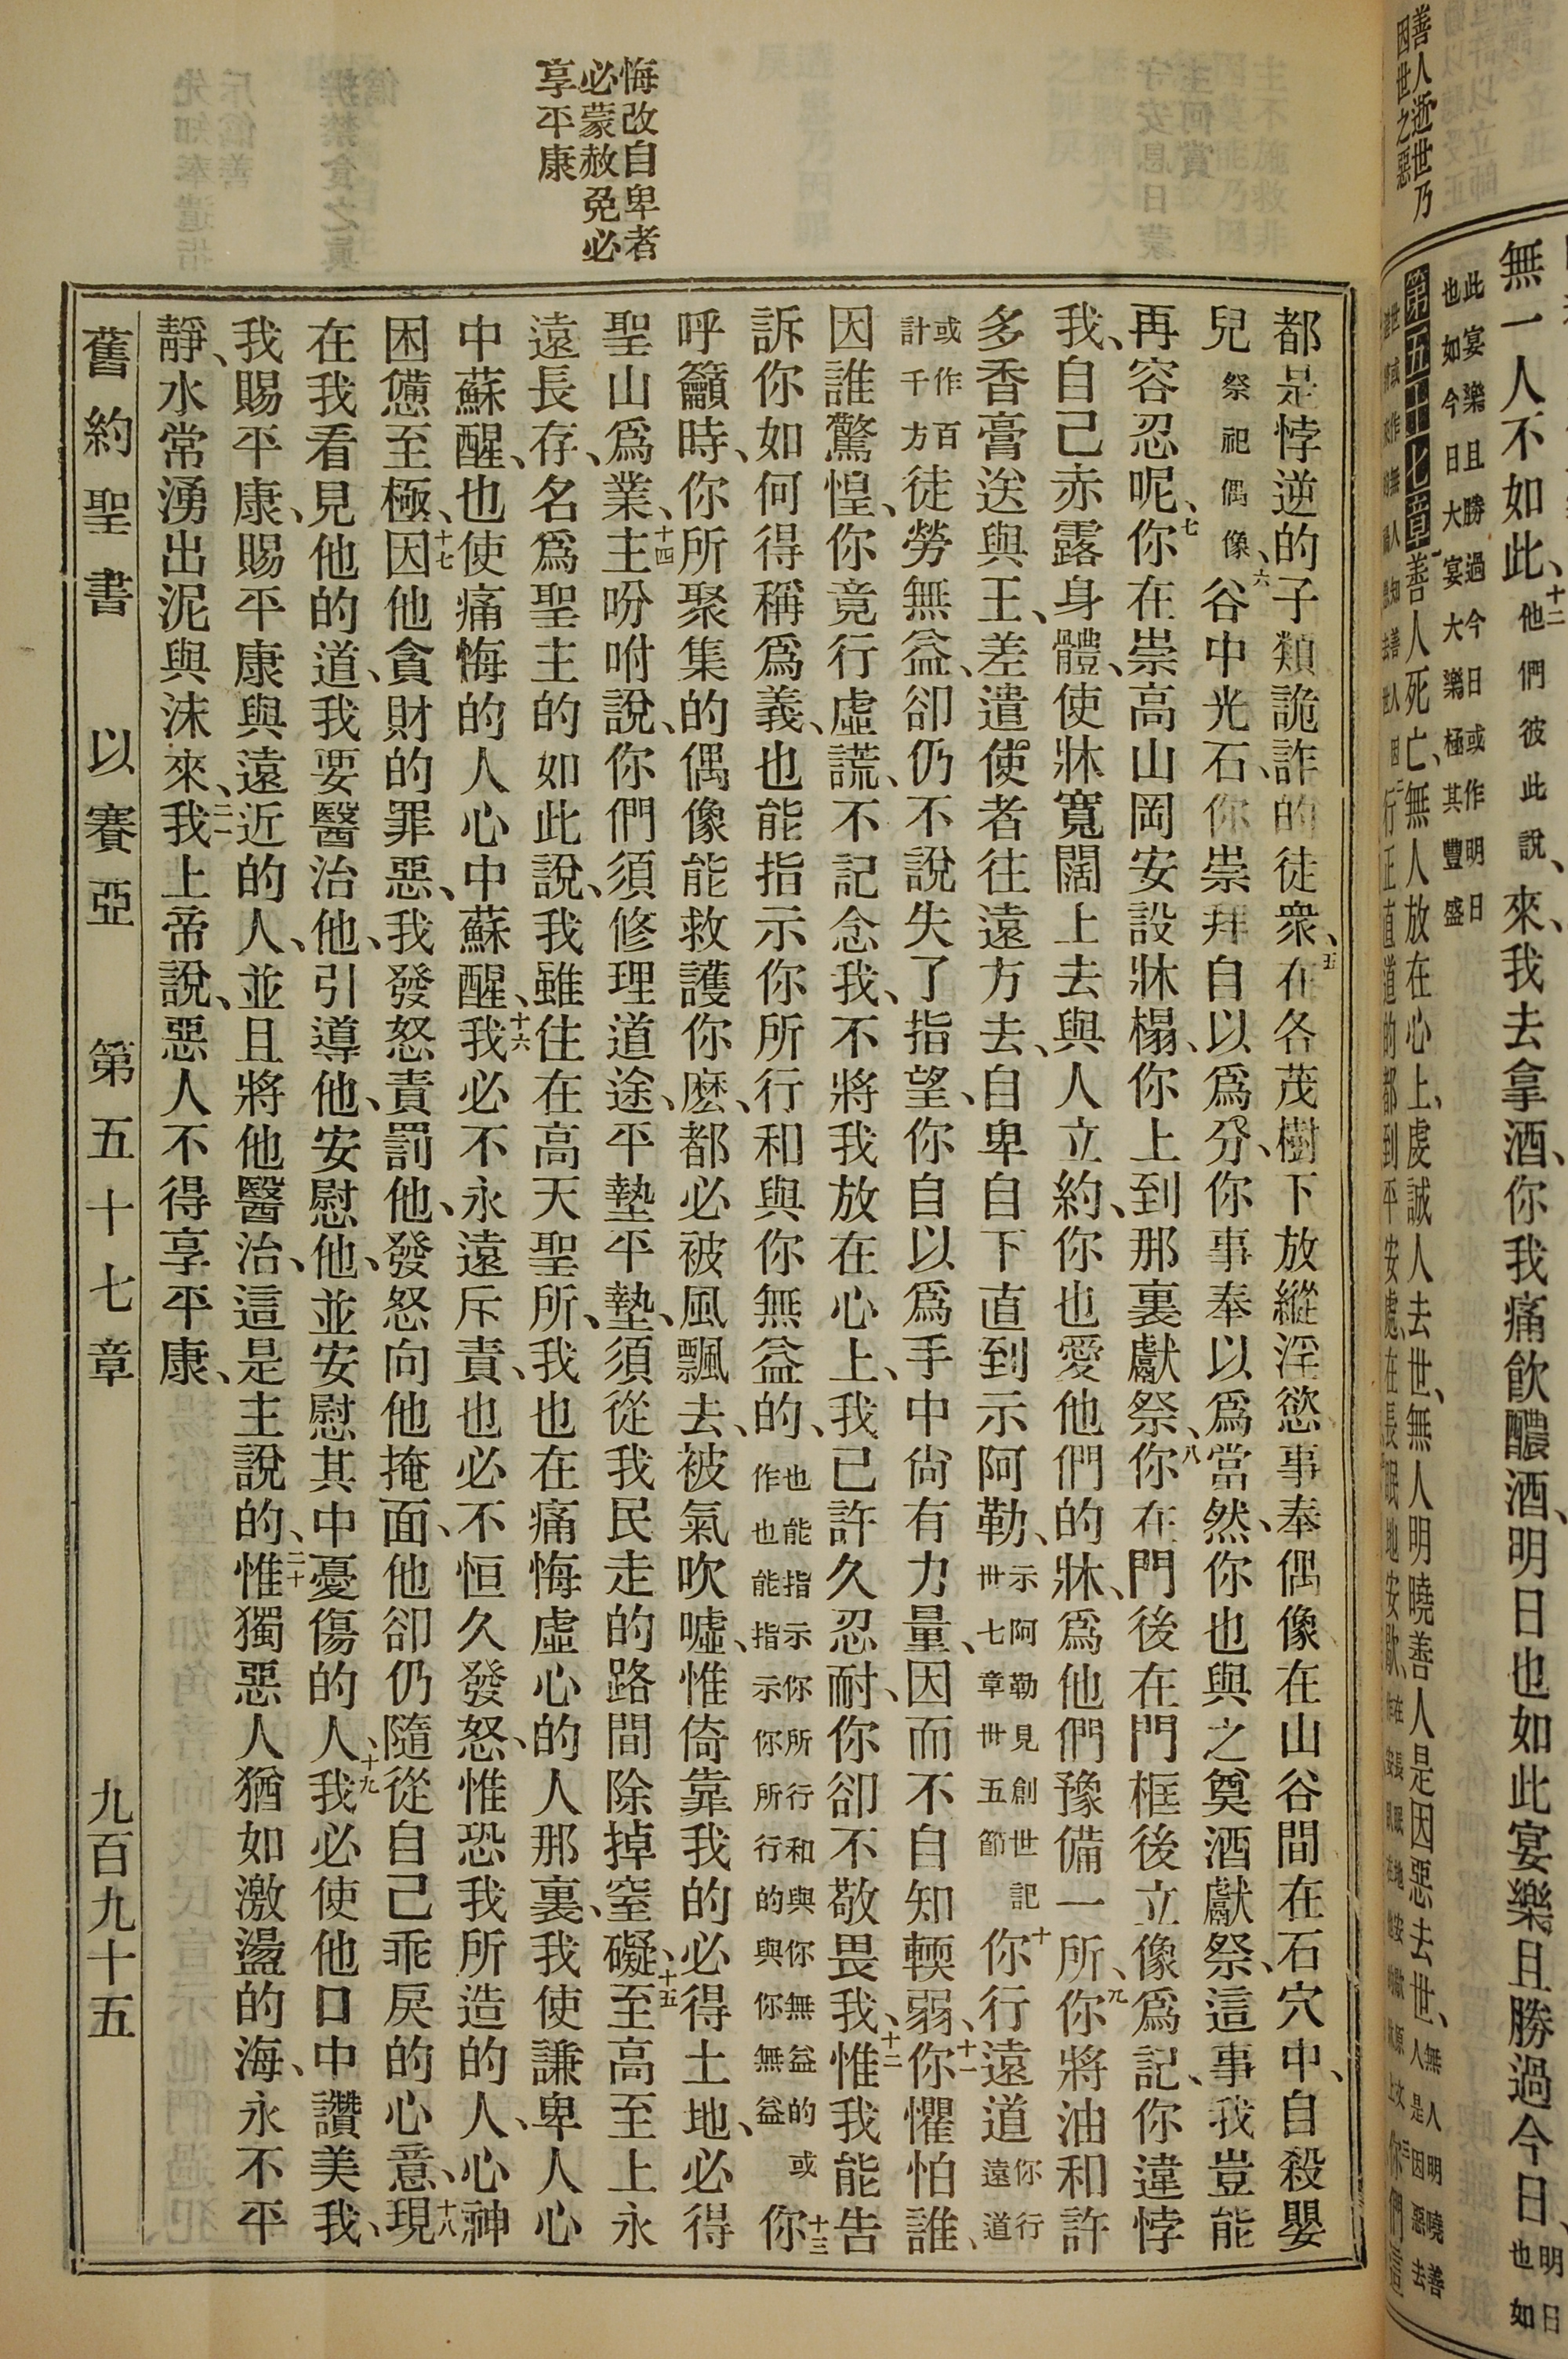 無一人不如此、十二他們彼此說、來、我去拿酒、你我痛飲醲酒、明日也如此宴樂、且勝過今日、明日也如
此宴樂且勝過今日或作明日
也如今日大宴大樂極其豐盛
第五十七章善人死亡、無人放在心上、虔誠人去世、無人明曉善人是因惡去世、無人明曉善人是因惡去
善人逝世乃
因世之惡
悔改自卑者
必蒙赦免必
享平康
都是悖逆的子類詭詐的徒衆、五在各茂樹下放縱淫慾事奉偶像在山谷間在石穴中、自殺嬰
兒祭祀偶像、六谷中光石、你崇拜自以爲分、你事奉以爲當然、你也與之奠酒獻祭、這事我豈能
再容忍呢、七你在崇高山岡安設牀榻、你上到那裏獻祭、八你在門後在門框後立像爲記、你違悖
我、自己赤露身體、使牀寬闊上去與人立約、你也愛他們的牀、爲他們豫備一所、九你將油和許
多香膏送與王、差遣使者往遠方去、自卑自下直到示阿勒、示阿勒見創世記卅七章卅五節十你行遠道你行遠道
或作百計千方徒勞無益、卻仍不說失了指望、你自以爲手中尙有力量、因而不自知輭弱、十一你懼怕誰、
因誰驚惶、你竟行虛謊、不記念我、不將我放在心上、我已許久忍耐、你卻不敬畏我、十二惟我能告
訴你如何得稱爲義、也能指示你所行和與你無益的、也能指示你所行和與你無益的或作也能指示你所行的與你無益十三你
呼籲時、你所聚集的偶像能救護你麽、都必被風飄去、被氣吹噓、惟倚靠我的必得土地、必得
聖山爲業、十四主吩咐說、你們須修理道途、平墊平墊、須從我民走的路間除掉窒礙、十五至高至上永
遠長存、名爲聖主的如此說、我雖住在高天聖所、我也在痛悔虛心的人那裏、我使謙卑人心
中蘇醒、也使痛悔的人心中蘇醒、十六我必不永遠斥責、也必不恒久發怒、惟恐我所造的人、心神
困憊至極、十七因他貪財的罪惡、我發怒責罰他、發怒向他掩面、他卻仍隨從自己乖戾的心意、十八現
在我看見他的道、我要醫治他、引導他、安慰他、並安慰其中憂傷的人、十九我必使他口中讚美我、
我賜平康、賜平康與遠近的人、並且將他醫治、這是主說的、二十惟獨惡人猶如激盪的海、永不平
靜、水常湧出泥與沫來、二一我上帝說、惡人不得享平康、
舊約聖書 以賽亞 第五十七章 九百九十五